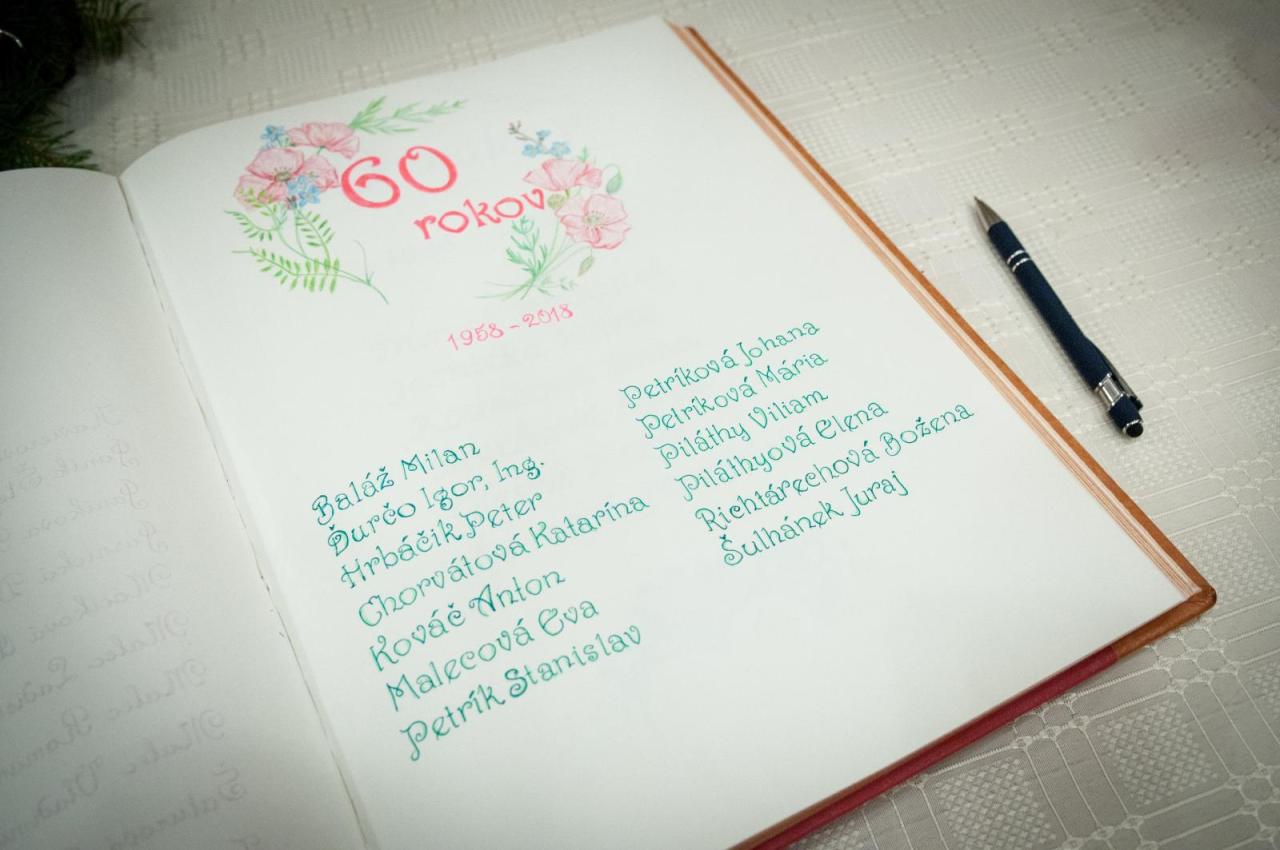 60
rokov
1958 - 2018
Baláž Milan
Ďurčo Igor, Ing.
Hrbáčik Peter
Chorvátová Katarína
Kováč Anton
Malecová Eva
Petrík Stanislav
Petríková Johana
Petríková Mária
Piláthy Viliam
Piláthyová Elena
Richtárechová Božena
Šulhánek Juraj